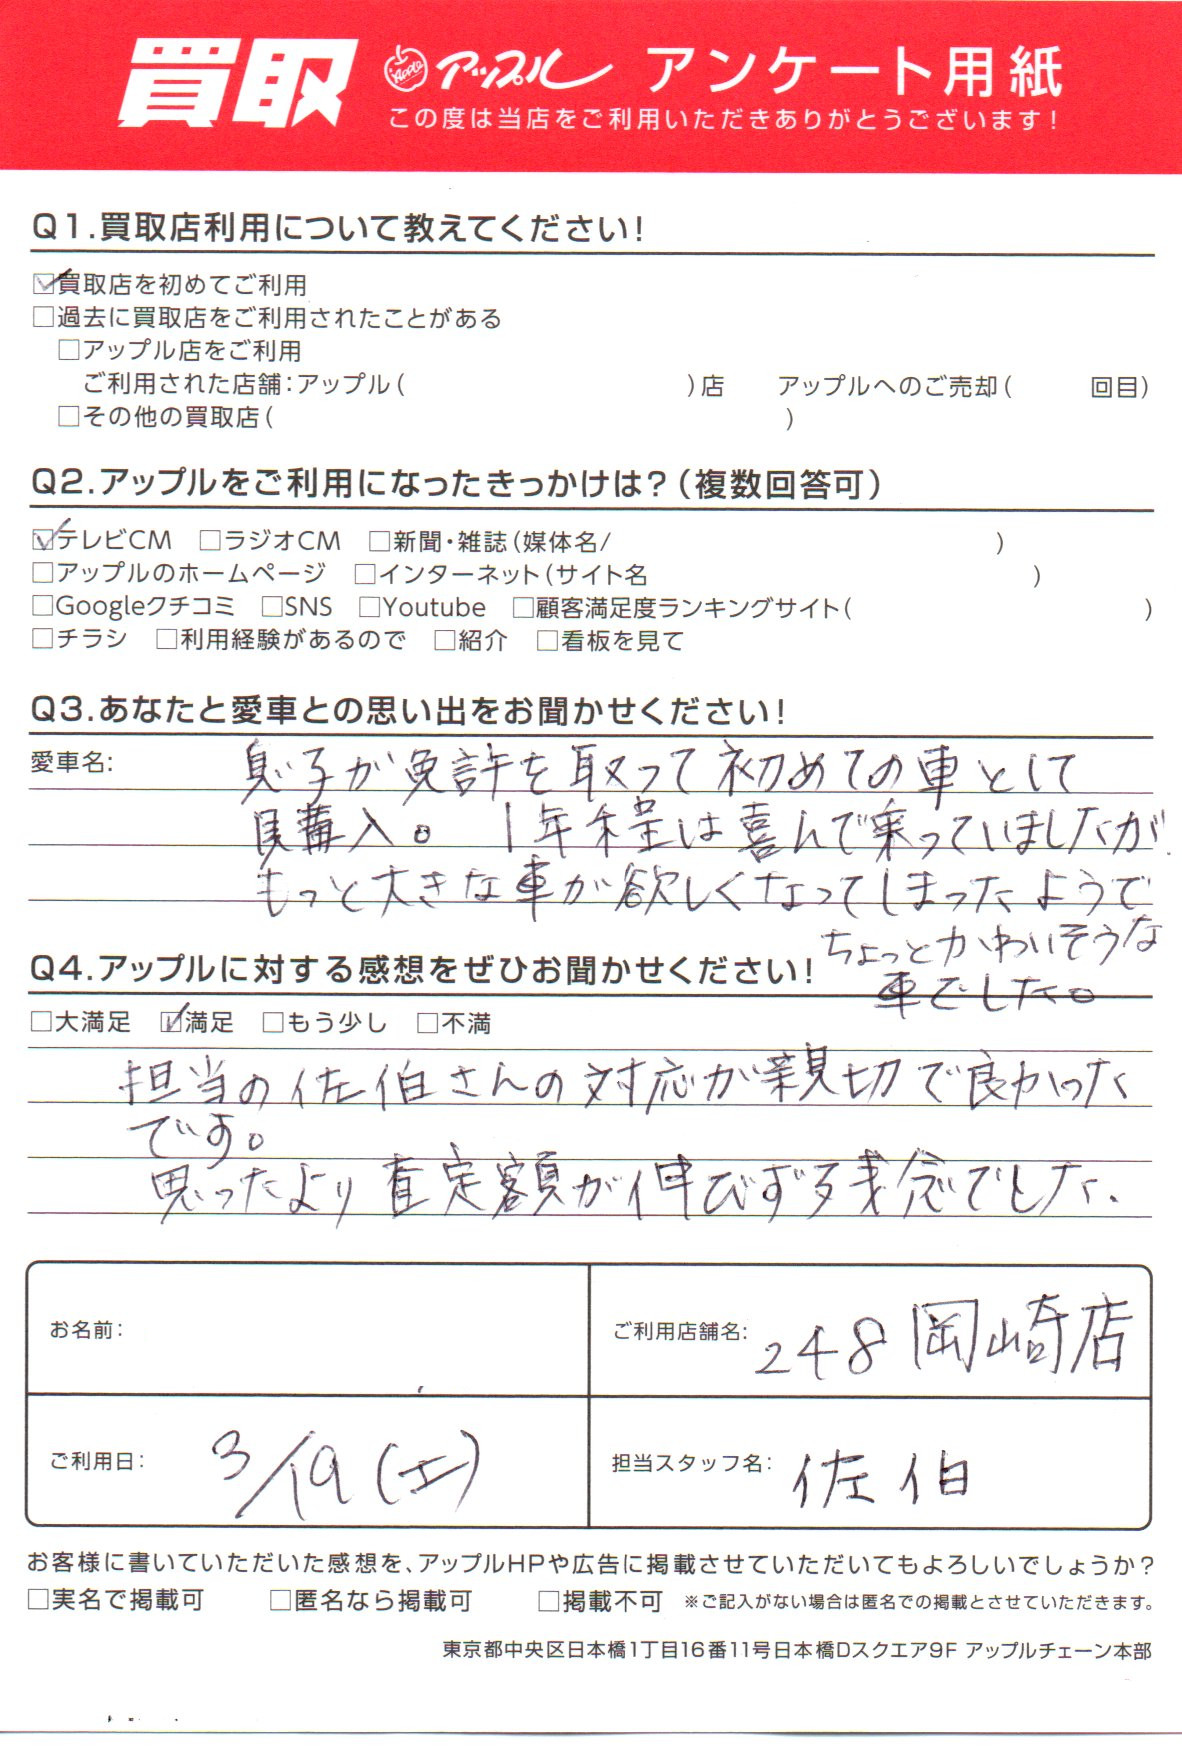 買取 アップル アンケート用紙
この度は当店をご利用いただきありがとうございます!
Q1.買取店利用について教えてください!
☑買取店を初めてご利用
□過去に買取店をご利用されたことがある
□アップル店をご利用
ご利用された店舗:アップル( )店 アップルへのご売却( 回目)
□その他の買取店( )
Q2.アップルをご利用になったきっかけは?(複数回答可)
☑テレビCM □ラジオCM □新聞・雑誌(媒体名/ )
□アップルのホームページ □インターネット(サイト名 )
□Googleクチコミ □SNS □Youtube □顧客満足度ランキングサイト( )
□チラシ □利用経験があるので □紹介 □看板を見て
Q3.あなたと愛車との思い出をお聞かせください!
愛車名: 息子が免許を取って初めての車として
購入。1年程は喜んで乗っていましたが
もっと大きな車が欲しくなってしまったようで
ちょっとかわいそうな
車でした。
Q4.アップルに対する感想をぜひお聞かせください!
□大満足 ☑満足 □もう少し □不満
担当の佐伯さんの対応が親切で良かった
です。
思ったより査定額が伸びず残念でした、
お名前: ご利用店舗名: 248岡崎店
ご利用日: 3/19(土) 担当スタッフ名: 佐伯
お客様に書いていただいた感想を、アップルHPや広告に掲載させていただいてもよろしいでしょうか?
□実名で掲載可 □匿名なら掲載可 □掲載不可 ※ご記入がない場合は匿名での掲載とさせていただきます。
東京都中央区日本橋1丁目16番11号日本橋Dスクエア9F アップルチェーン本部